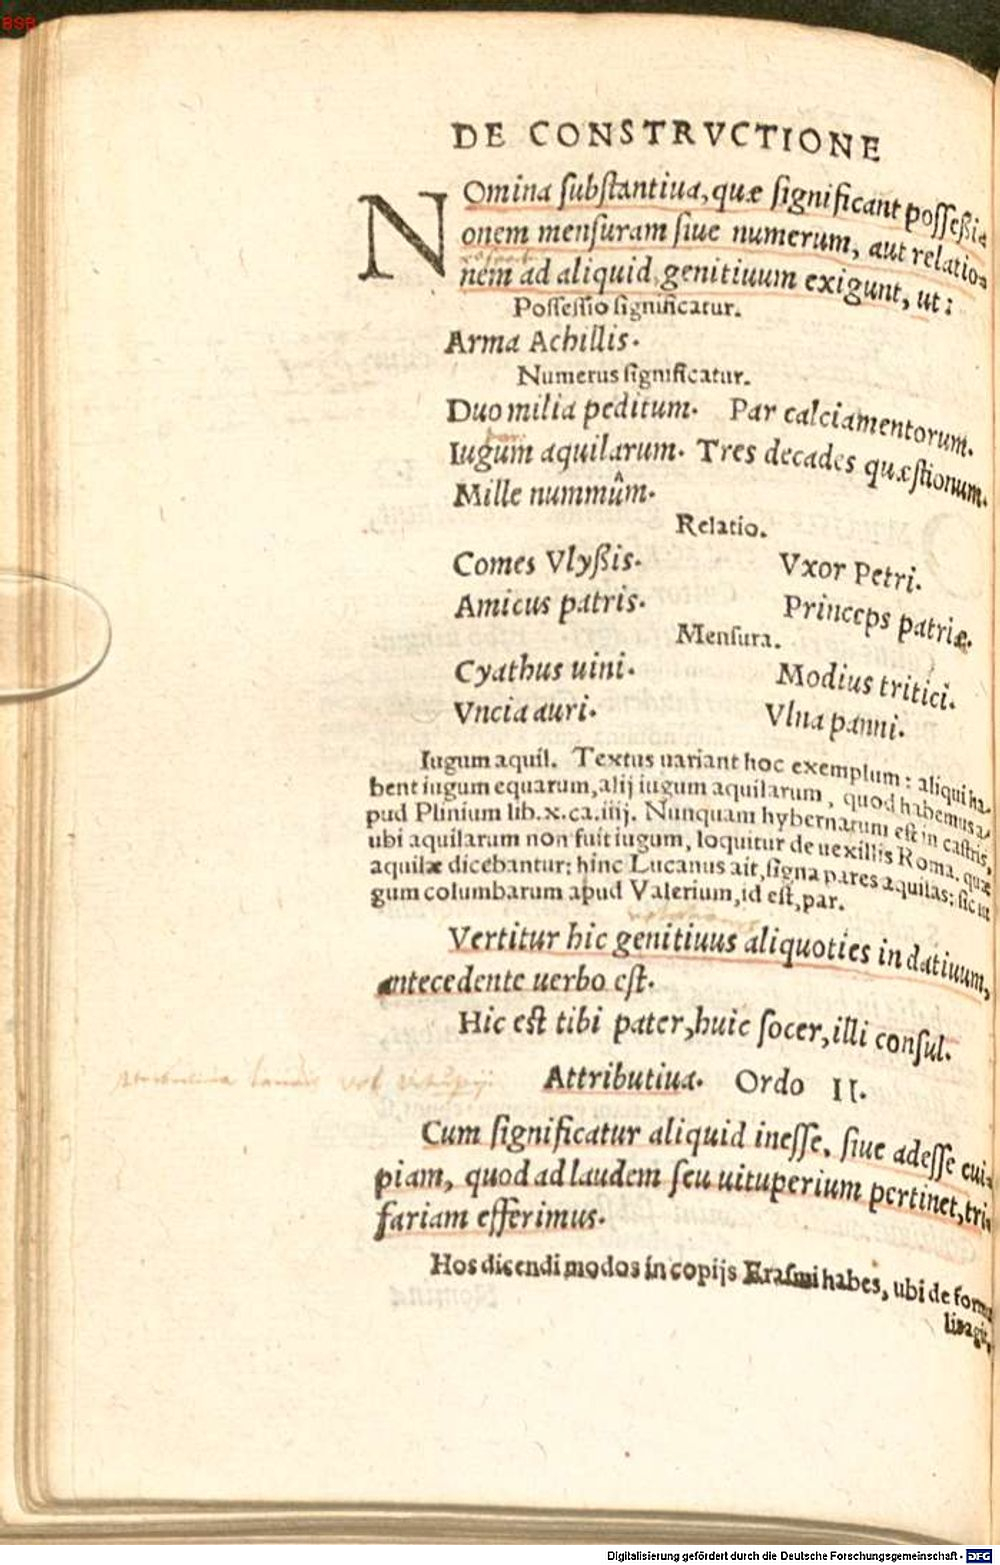 BSB
DE CONSTRVCTIONE
NOmina ſubſtantiua, quæ ſignificant poſſeßi-
onem menſuram ſiue numerum, aut relatio-
nem ad aliquid, genitiuum exigunt, ut:
Poſſeſſio ſignificatur.
Arma Achillis.
Numerus ſignificatur.
Duo milia peditum. Par calciamentorum.
par.
Iugum aquilarum. Tres decades quæſtionum.
Mille nummûm.
Relatio.
Comes Vlyßis. Vxor Petri.
Amicus patris. Princeps patriæ.
Menſura.
Cyathus uini. Modius tritici.
Vncia auri. Vlna panni.
Iugum aquil. Textus uariant hoc exemplum: aliqui ha-
bent iugum equarum, alij iugum aquilarum, quod habemus a-
pud Plinium lib. x. ca. iiij. Nunquam hybernarum eſt in caſtris,
ubi aquilarum non fuit iugum, loquitur de uexillis Roma. quæ
aquilæ dicebantur: hinc Lucanus ait, ſigna pares aquilas: ſic iu
gum columbarum apud Valerium, id eſt, par.
Vertitur hic genitiuus aliquoties in datiuum,
antecedente uerbo eſt.
Hic eſt tibi pater, huic ſocer, illi conſul.
Attributiua. Ordo II.
laudis vel vituperij
Cum ſignificatur aliquid ineſſe, ſiue adeſſe cui-
piam, quod ad laudem ſeu uituperium pertinet, tri-
fariam efferimus.
Hos dicendi modos in copijs Eraſmi habes, ubi de formu
lis agit.
Digitalisierung gefördert durch die Deutsche Forschungsgemeinschaft - DFG